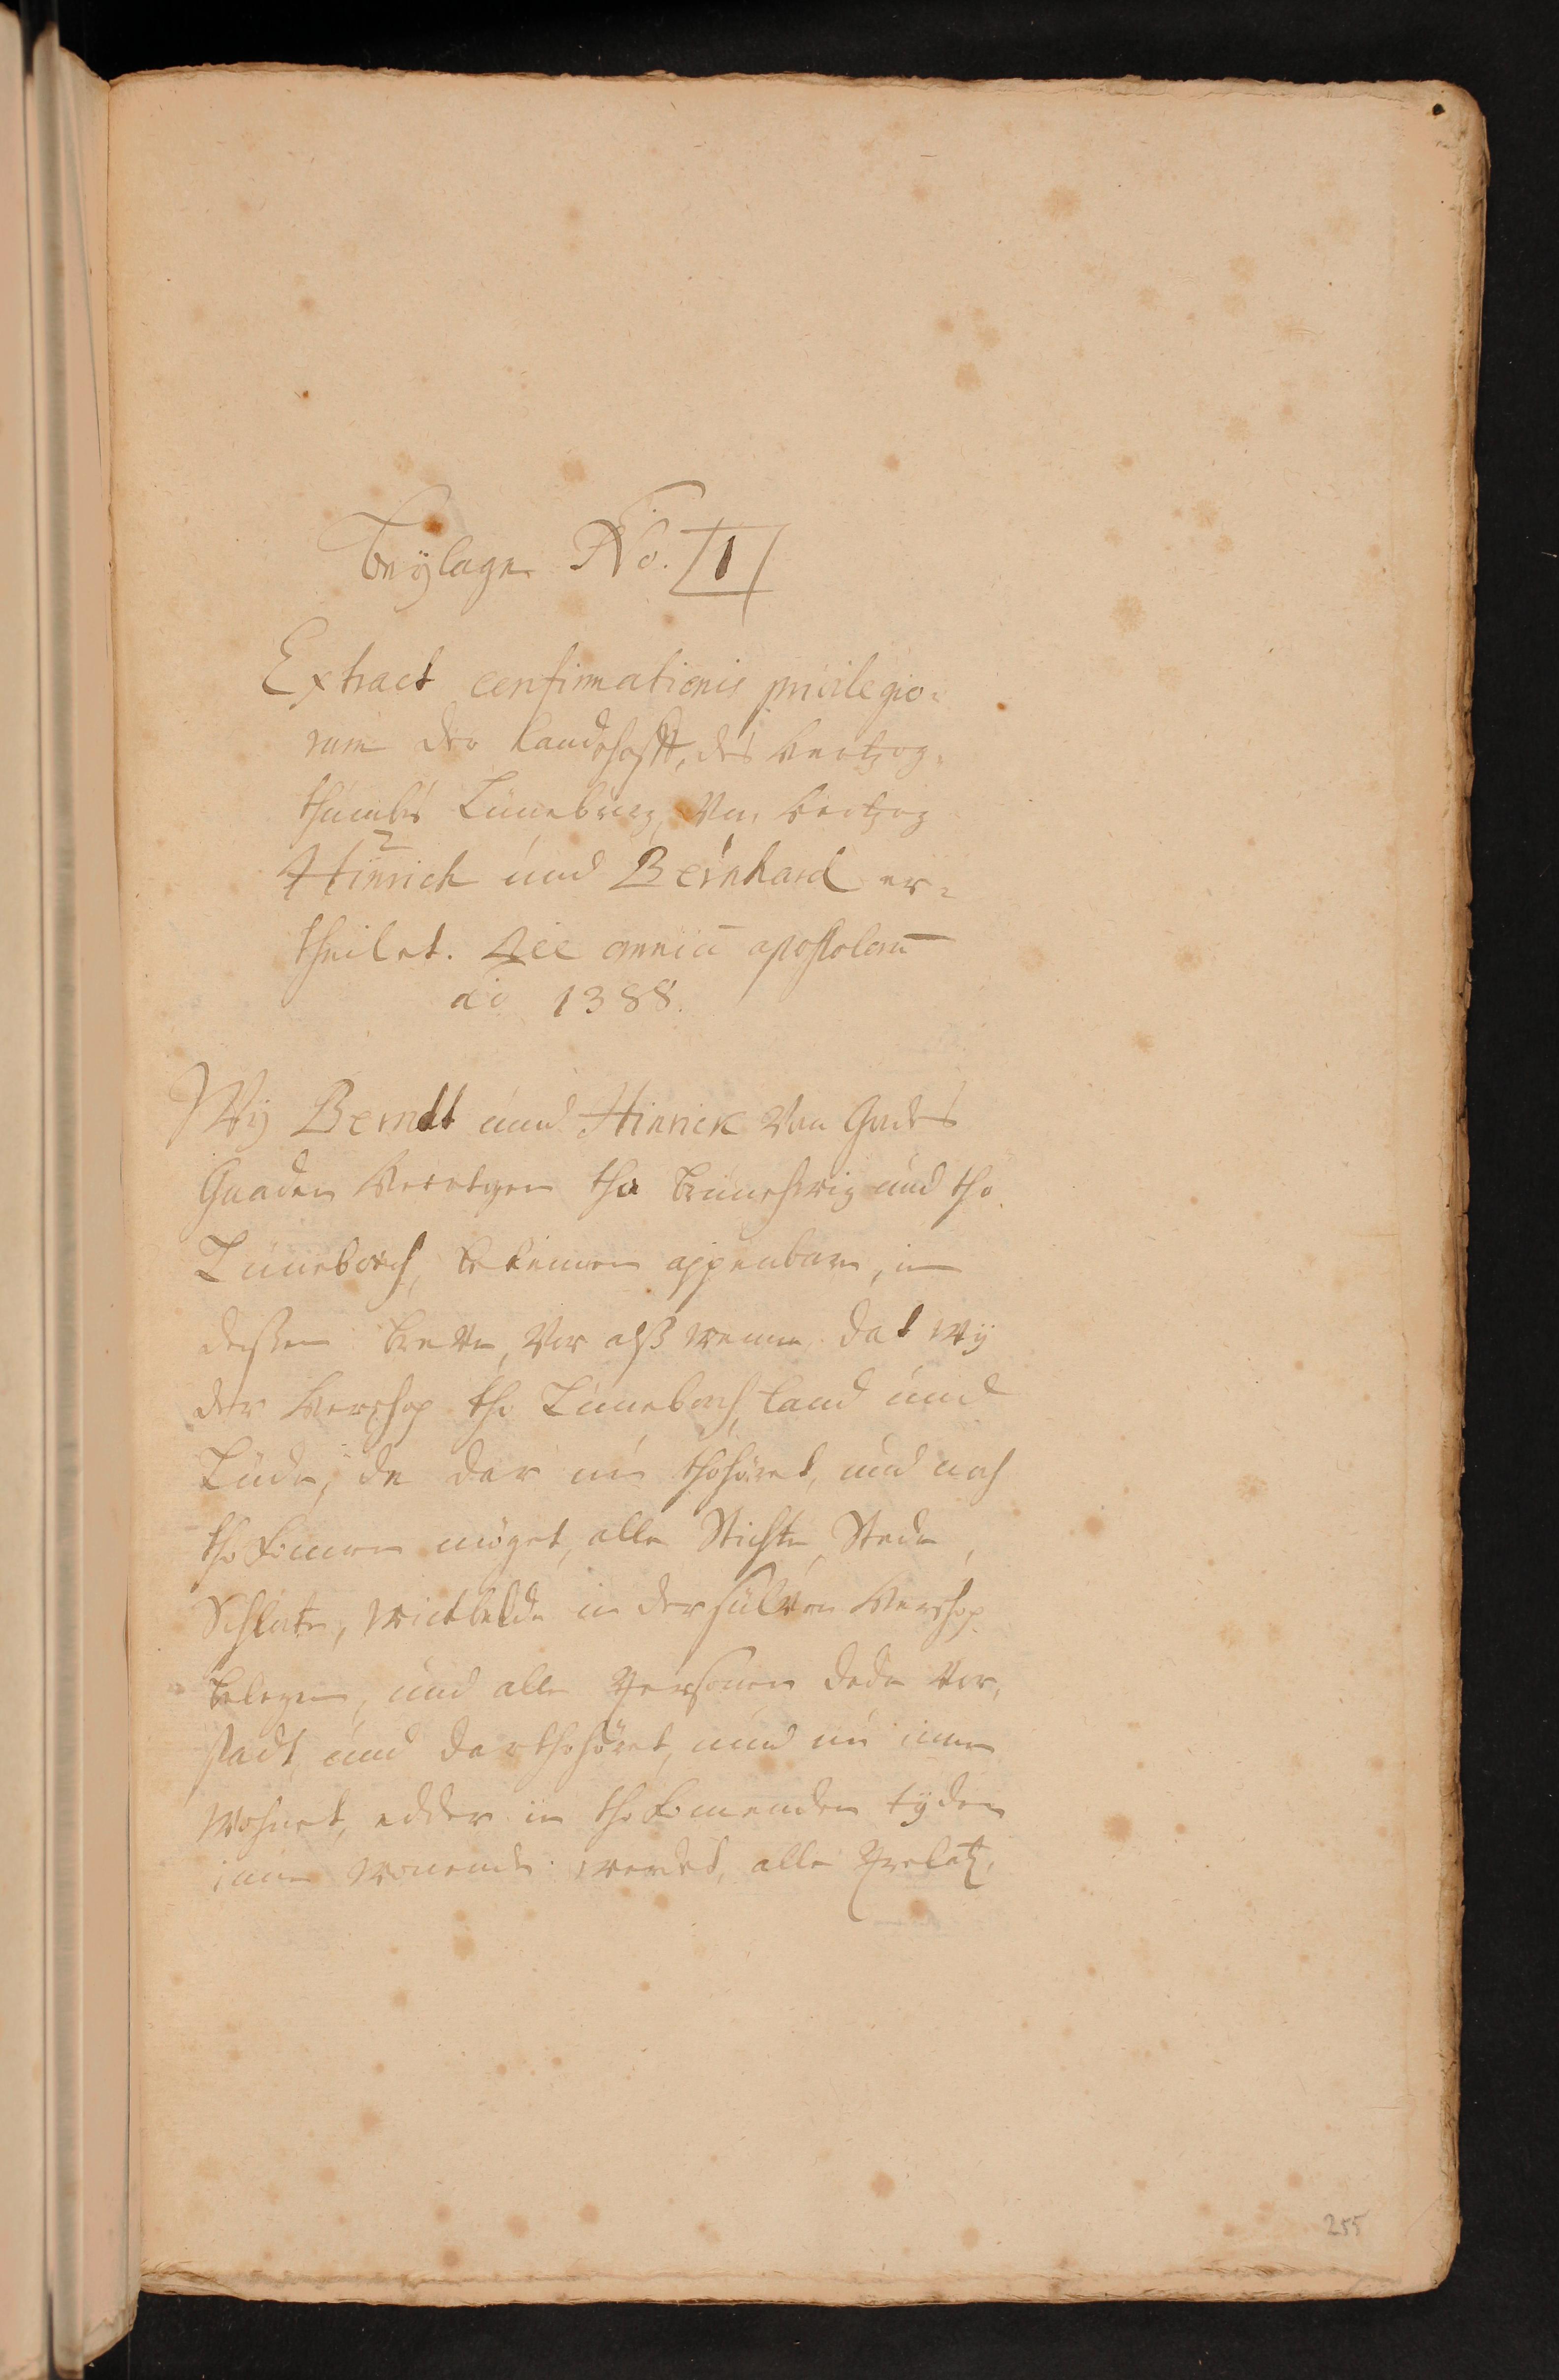 Beylage No. 1
Extract confirmationis privilegio-
rum der Landschafft, des Hertzog-
thumbs Lüneburg, Von Hertzog
Hinrich und Bernhard er-
theilet. omniū apostolorū
aō 1388.
Wÿ Berndt und Hinrick Van Gades
Gnaden Hertogen tho Brunschwig und tho
Lüneborch, bekennen appenbare, in
dessen breve, Vor alß weme dat wÿ
der Herschop tho Lüneborch, Land und
Lüde, de dar nu thohöret, und noch
tho komen möget, alle Stichte, Stede,
Schlote, wickbelde in dersülven Herschop
belegen, und alle Personen dede Vor
stadt und darthohöret, und nu inne
wohnet, edder in tho komenden tÿden
inne wonende werdet, alle Prelaten,
255